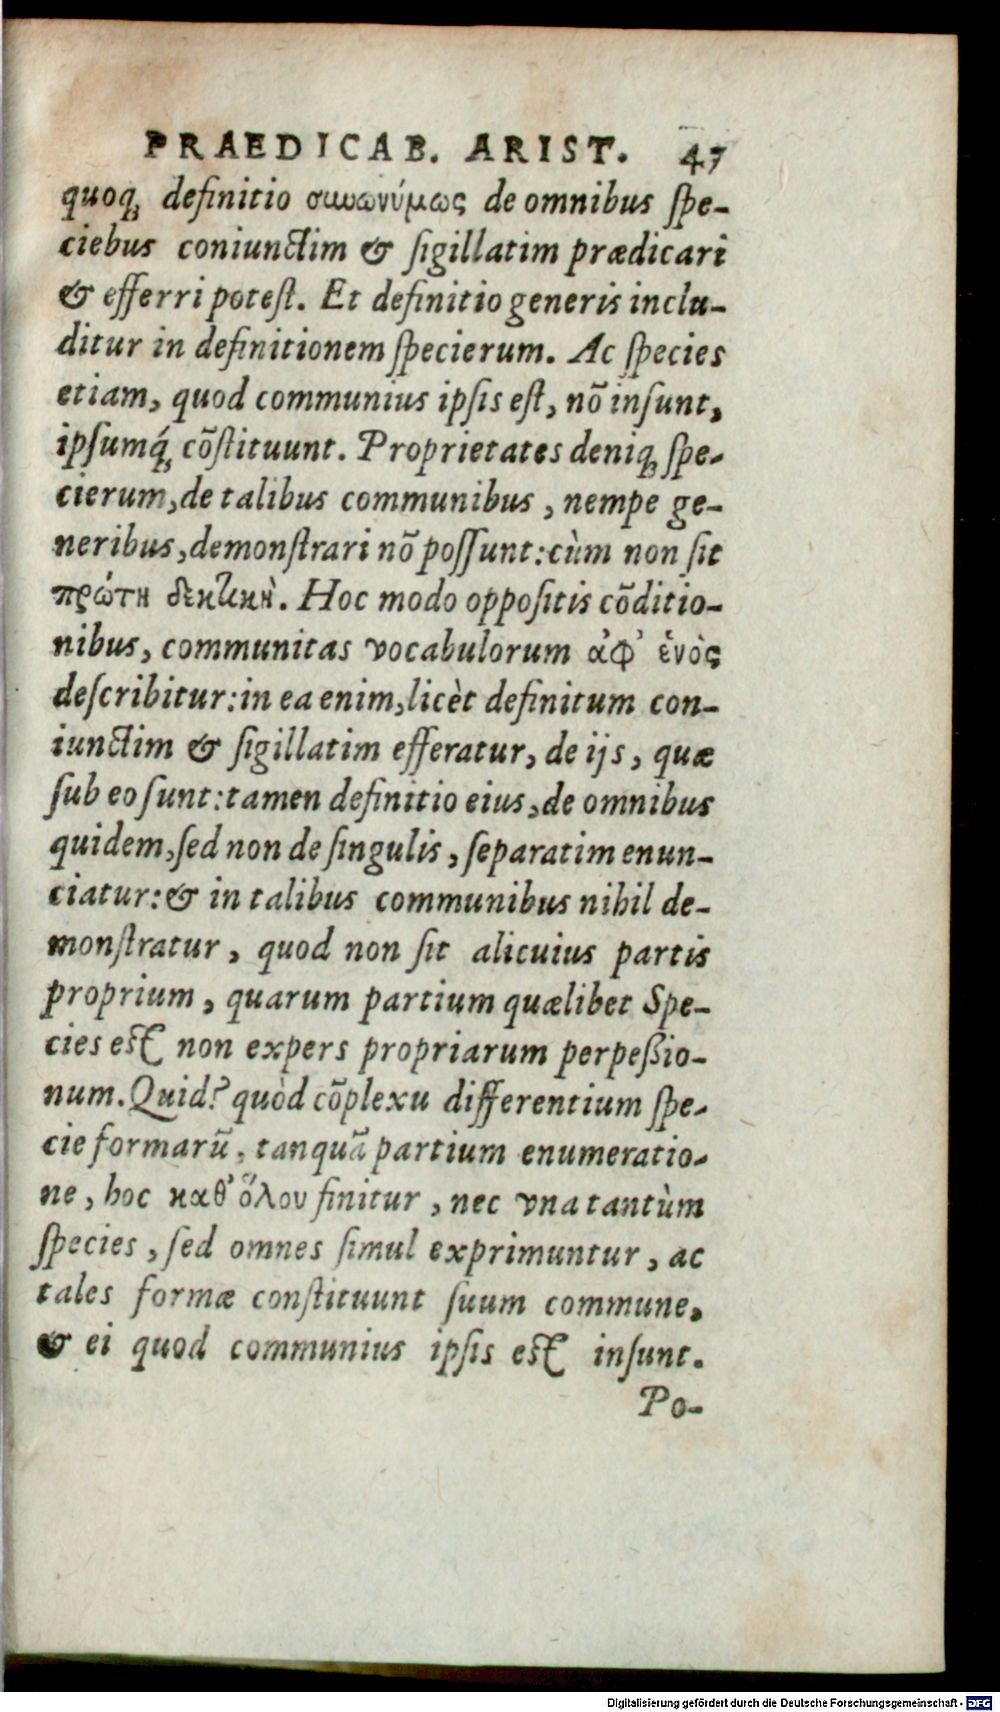 PRAEDICAB. ARIST. 47
quoq; definitio συνωνύμως de omnibus ſpe-
ciebus coniunctim & ſigillatim prædicari
& efferri poteſt. Et definitio generis inclu-
ditur in definitionem ſpecierum. Ac ſpecies
etiam, quod communius ipſis eſt, nõ inſunt,
ipſumq́; cõſtituunt. Proprietates deniq; ſpe-
cierum, de talibus communibus, nempe ge-
neribus, demonſtrari nõ poſſunt: cùm non ſit
πρώτη δεκτικὴ. Hoc modo oppoſitis cõditio-
nibus, communitas vocabulorum ἀφ' ἑνὸς
deſcribitur: in ea enim, licèt definitum con-
iunctim & ſigillatim efferatur, de ijs, quæ
ſub eo ſunt: tamen definitio eius, de omnibus
quidem, ſed non de ſingulis, ſeparatim enun-
ciatur: & in talibus communibus nihil de-
monſtratur, quod non ſit alicuius partis
proprium, quarum partium quælibet Spe-
cies eſt non expers propriarum perpeßio-
num. Quid? quòd cõplexu differentium ſpe-
cie formarũ, tanquã partium enumeratio-
ne, hoc καθ' ὅλου finitur, nec vna tantùm
ſpecies, ſed omnes ſimul exprimuntur, ac
tales formæ conſtituunt ſuum commune,
& ei quod communius ipſis eſt inſunt.
Po-
Digitalisierung gefördert durch die Deutsche Forschungsgemeinschaft - DFG